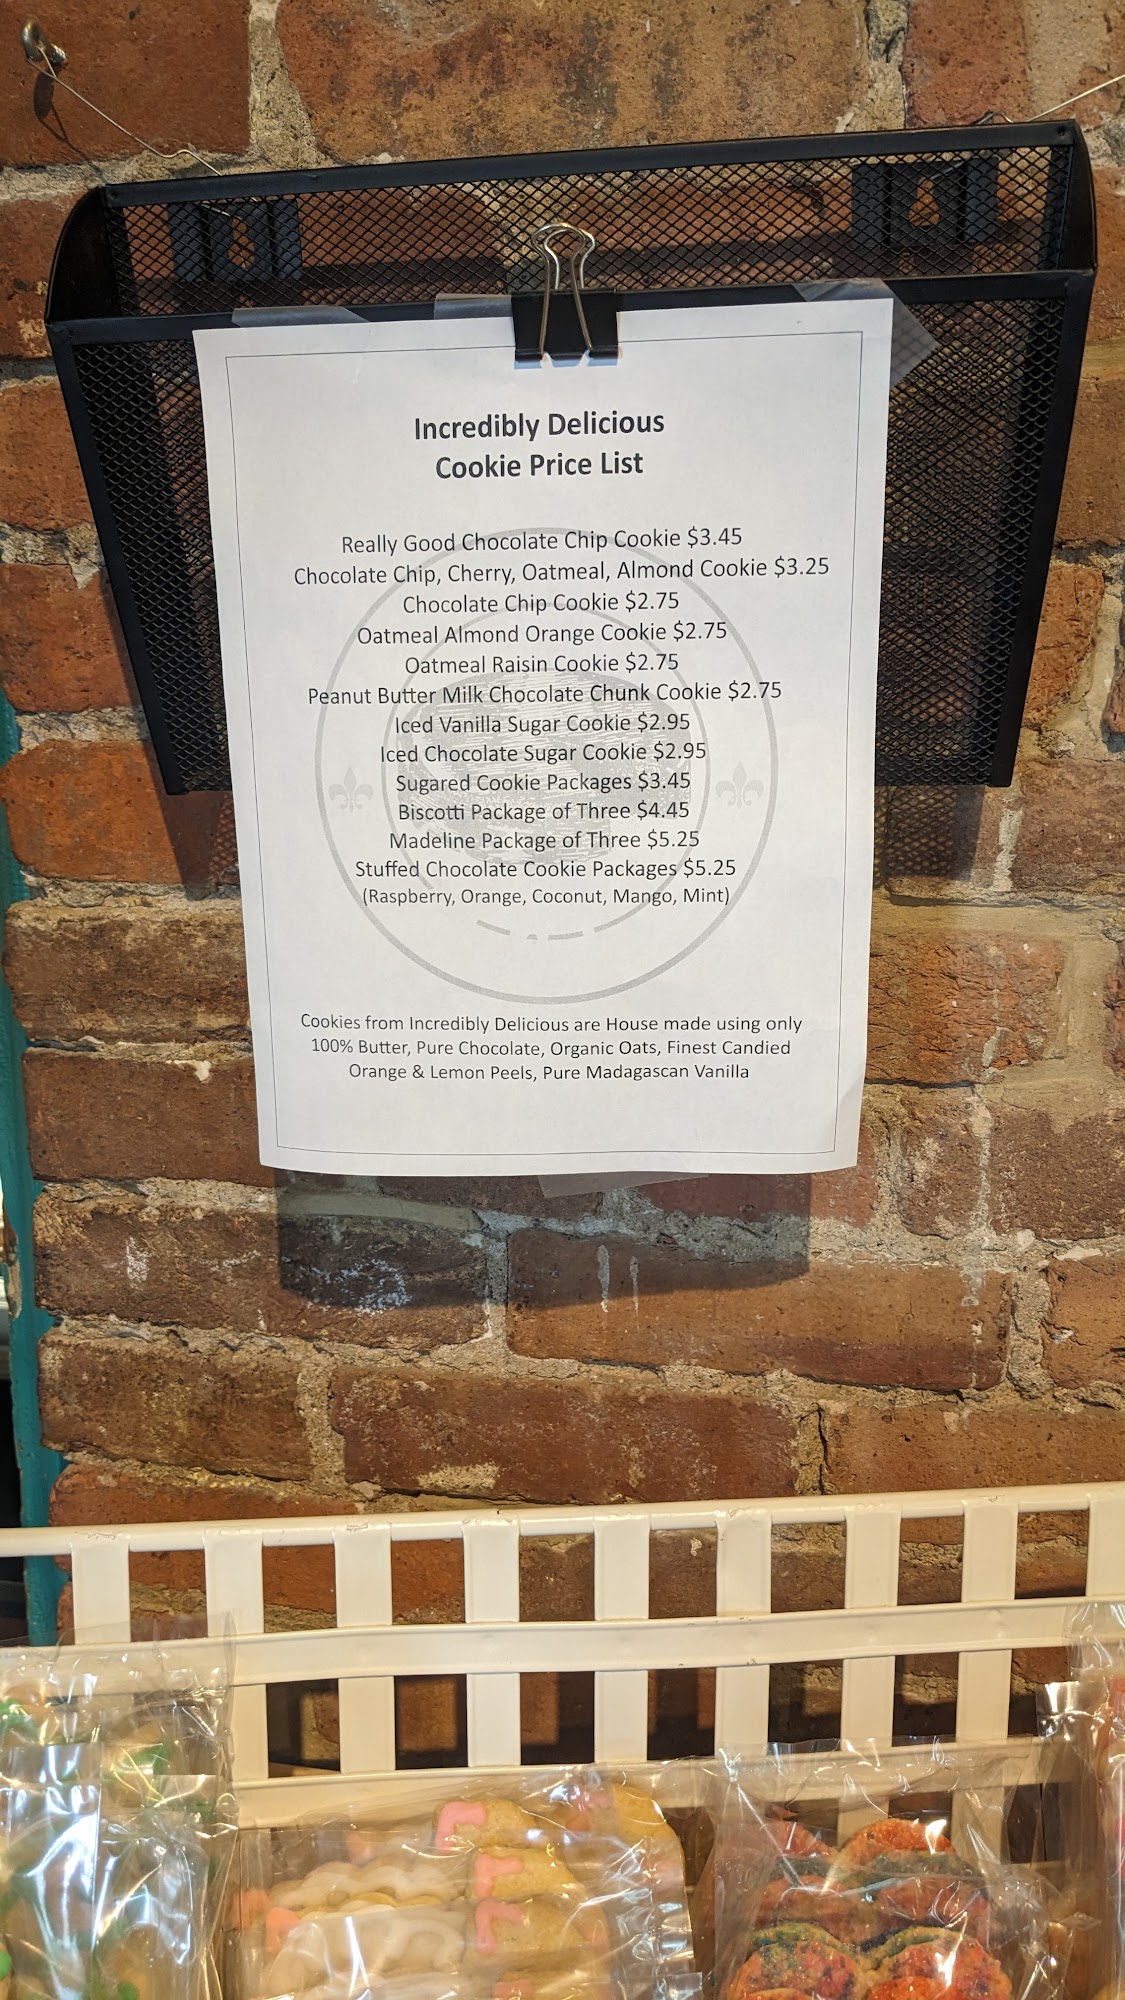 Incredibly Delicious
Cookie Price List
Really Good Chocolate Chip Cookie $3.45
Chocolate Chip, Cherry, Oatmeal, Almond Cookie $3.25
Chocolate Chip Cookie $2.75
Oatmeal Almond Orange Cookie $2.75
Oatmeal Raisin Cookie $2.75
Peanut Butter Milk Chocolate Chunk Cookie $2.75
Iced Vanilla Sugar Cookie $2.95
Iced Chocolate Sugar Cookie $2.95
Sugared Cookie Packages $3.45
Biscotti Package of Three $4.45
Madeline Package of Three $5.25
Stuffed Chocolate Cookie Packages $5.25
(Raspberry, Orange, Coconut, Mango, Mint)
Cookies from Incredibly Delicious are House made using only
100% Butter, Pure Chocolate, Organic Oats, Finest Candied
Orange & Lemon Peels, Pure Madagascan Vanilla